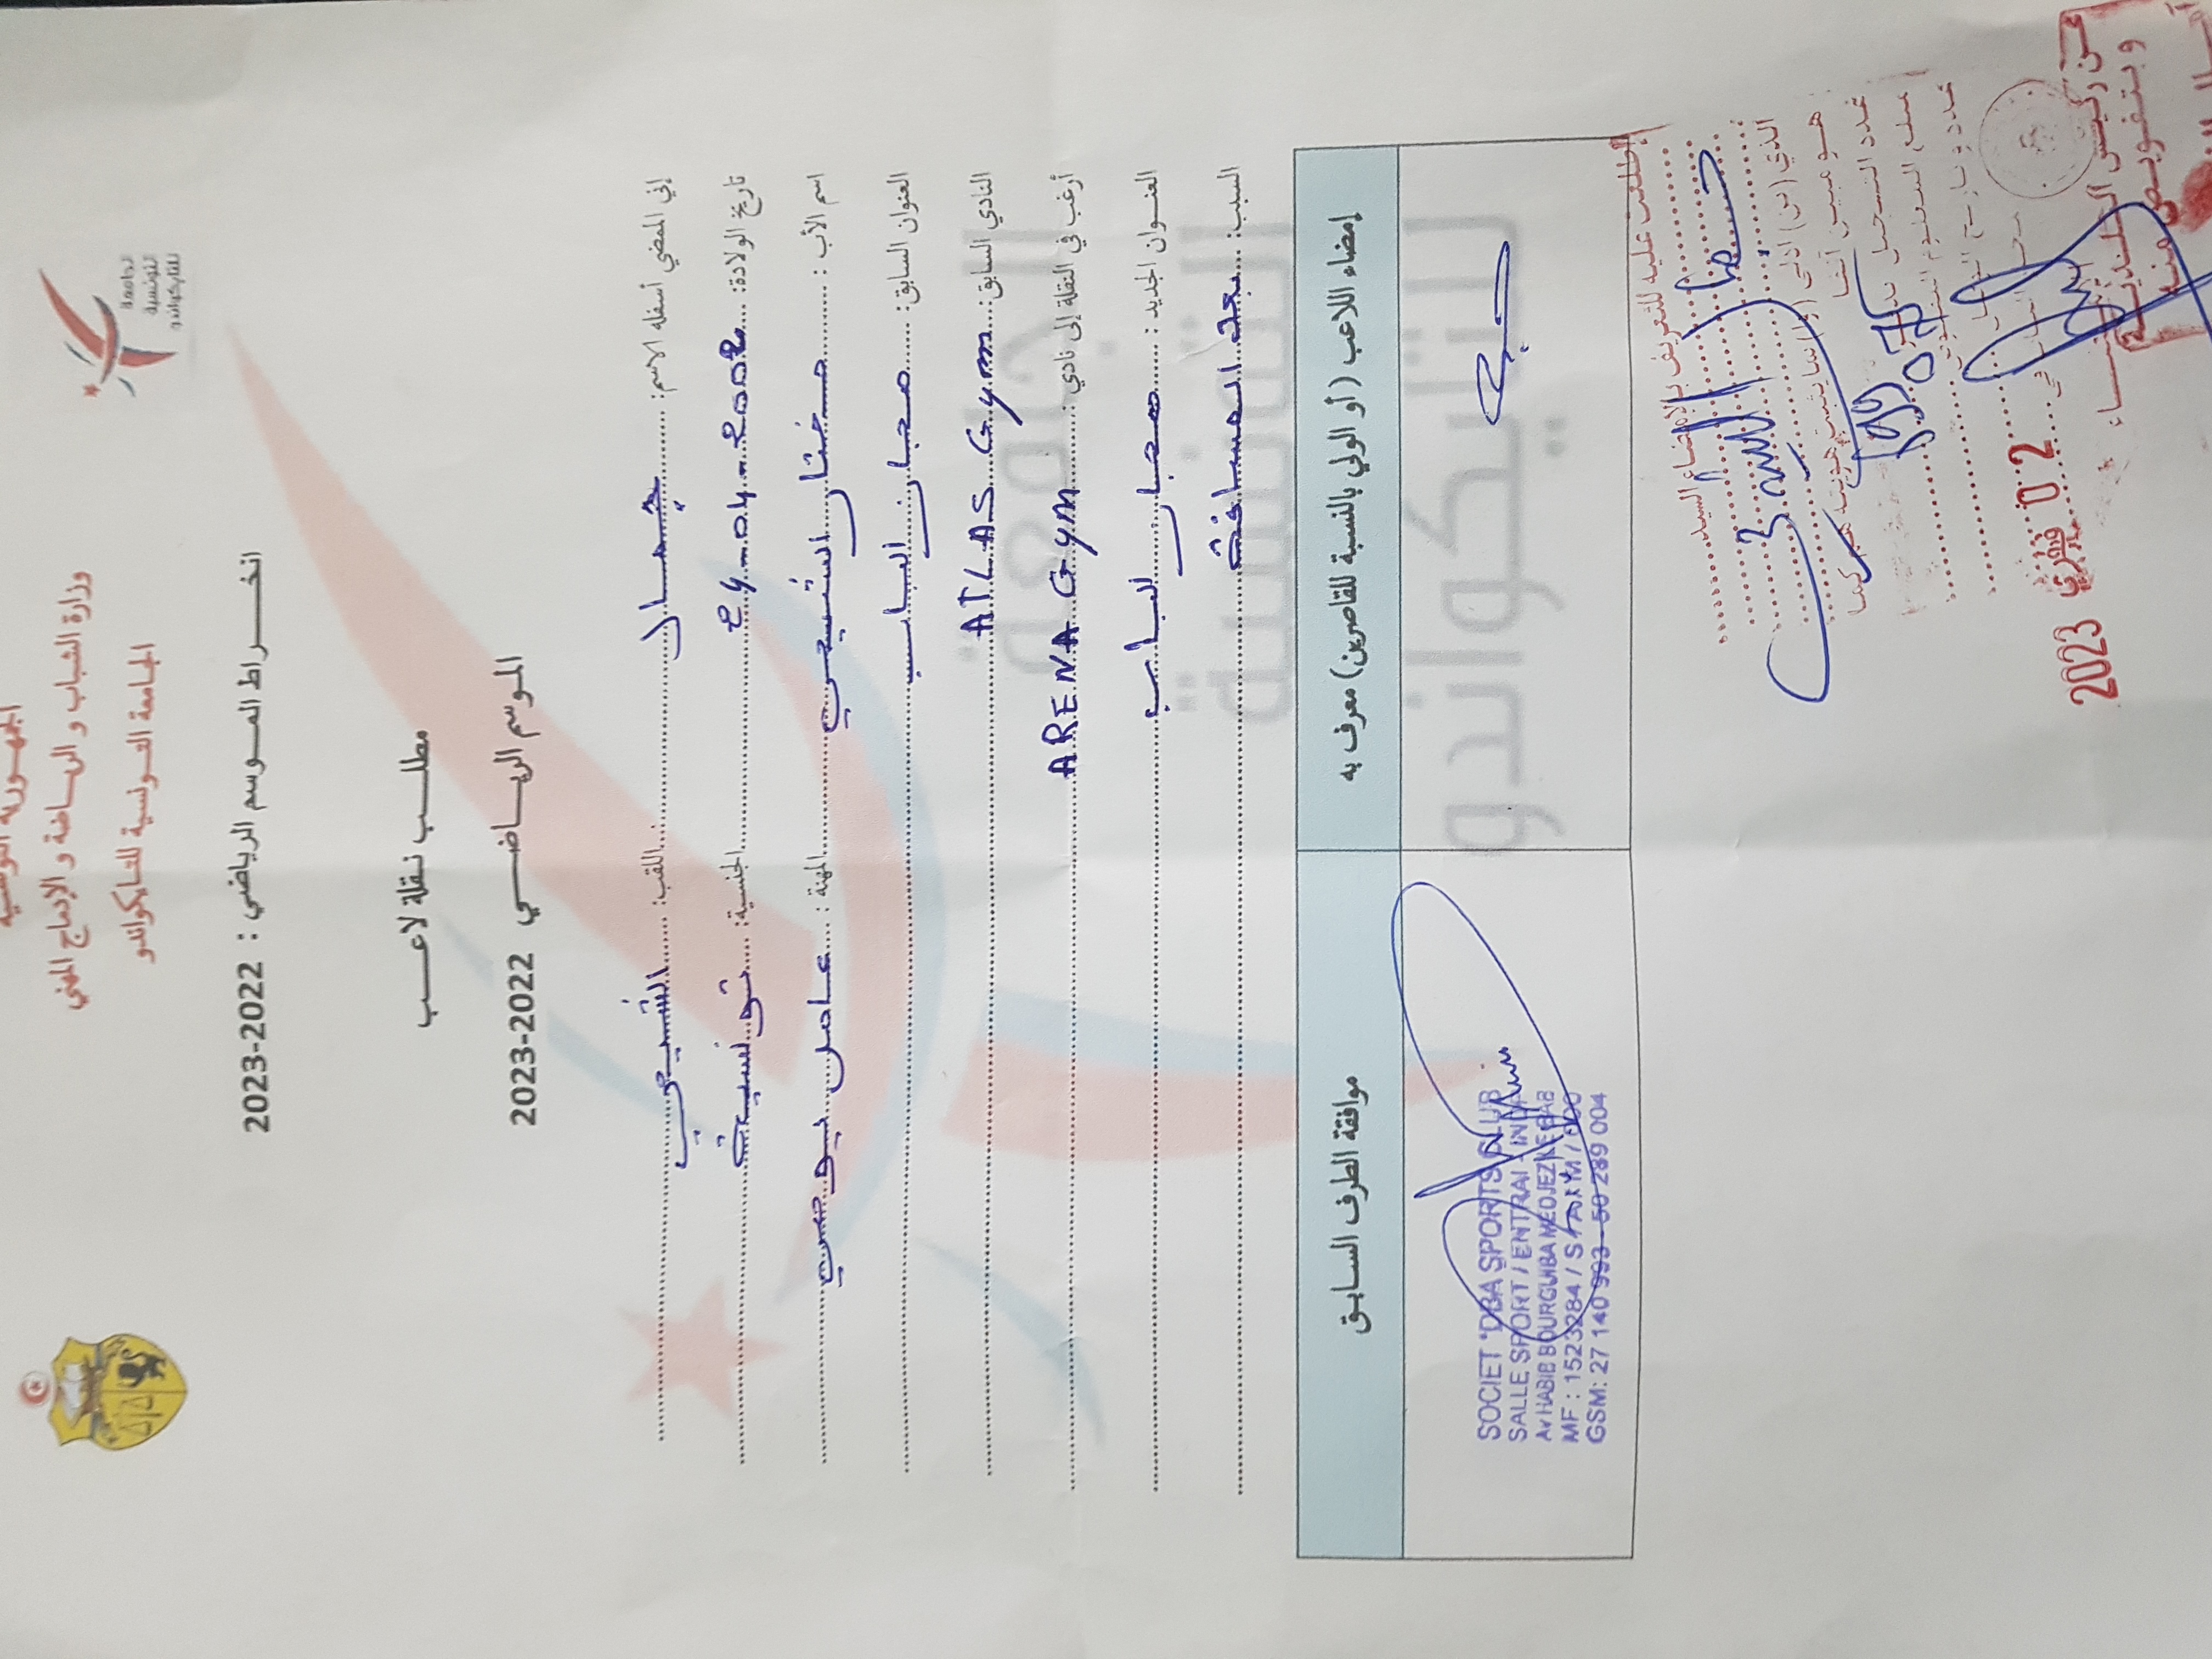 الجمهورية التونسية
وزارة الشباب و الرياضة و الإدماج المهني
الجامعة التونسية للتايكواندو
الجامعة
التونسية
للتايكواندو
انخراط الموسم الرياضي : 2022-2023
مطلب نقلة لاعب
الموسم الرياضي 2022-2023
إني الممضي أسفله الاسم: جمال اللقب: الشيحي
تاريخ الولادة: 24-04-2002 الجنسية: تونسية
اسم الأب : مختار الشيحي المهنة : عامل يومي
العنوان السابق: مجاز الباب
النادي السابق: ATLAS Gym
أرغب في النقلة إلى نادي: ARENA Gym
العنوان الجديد : مجاز الباب
السبب: بعد المسافة
إمضاء اللاعب (أو الولي بالنسبة للقاصرين) معرف به
موافقة الطرف السابق
الجامعة
التونسية
للتايكواندو
SOCIET "DBA SPORTS CLUB
SALLE SPORT / ENTRAI - IND
Av HABIB BOURGUIBA MEDJEZ ELBAB
MF : 1523284 /
GSM: 27 140 993 - 50 289 004
اطلعت عليه للتعريف بالإمضاء السيد
02 فيفري 2023
عن رئيس البلدية
وبتفويض منه